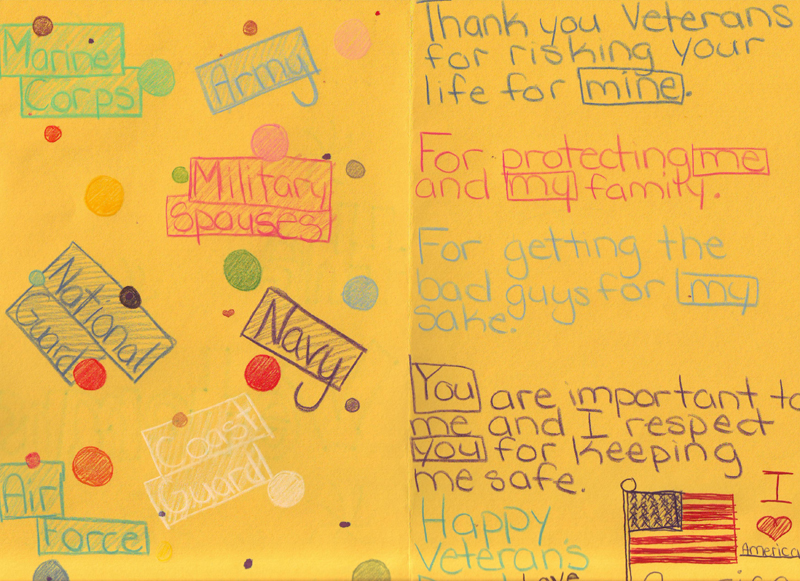 Marine
Corps
Army
Military
Spouses
National
Guard
Navy
Coast
Guard
Air
Force
Thank you Veterans
for risking your
life for mine.
For protecting me
and my family.
For getting the
bad guys for my
sake.
You are important to
me and I respect
you for keeping
me safe.
Happy
Veteran's
Love
I
America